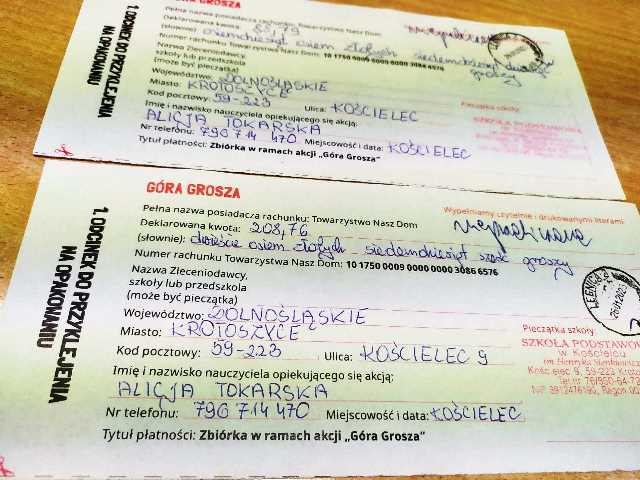 1. ODCINEK DO PRZYKLEJENIA
NA OPAKOWANIU
Pełna nazwa posiadacza rachunku: Towarzystwo Nasz Dom
Deklarowana kwota: 88,79
(słownie): osiemdziesiąt osiem złotych siedemdziesiąt
groszy
Numer rachunku Towarzystwa Nasz Dom: 10 1750 0009 0000 0000 3086 6576
Nazwa Zleceniodawcy,
szkoły lub przedszkola
(może być pieczątka)
Województwo: DOLNOŚLĄSKIE
Miasto: KROTOSZYCE
Kod pocztowy: 59-223 Ulica: KOŚCIELEC
Imię i nazwisko nauczyciela opiekującego się akcją:
ALICJA TOKARSKA
Nr telefonu: 790 714 470 Miejscowość i data: KOŚCIELEC
Tytuł płatności: Zbiórka w ramach akcji „Góra Grosza”
Pieczątka szkoły:
SZKOŁA PODSTAWOWA
GÓRA GROSZA
1. ODCINEK DO PRZYKLEJENIA
NA OPAKOWANIU
Wypełniamy czytelnie i drukowanymi literami
Pełna nazwa posiadacza rachunku: Towarzystwo Nasz Dom
Deklarowana kwota: 208,76
(słownie): dwieście osiem złotych siedemdziesiąt sześć groszy
Numer rachunku Towarzystwa Nasz Dom: 10 1750 0009 0000 0000 3086 6576
Nazwa Zleceniodawcy,
szkoły lub przedszkola
(może być pieczątka)
Województwo: DOLNOŚLĄSKIE
Miasto: KROTOSZYCE
Kod pocztowy: 59-223 Ulica: KOŚCIELEC 9
Imię i nazwisko nauczyciela opiekującego się akcją:
ALICJA TOKARSKA
Nr telefonu: 790 714 470 Miejscowość i data: KOŚCIELEC
Tytuł płatności: Zbiórka w ramach akcji „Góra Grosza”
LEGNICA
Pieczątka szkoły:
SZKOŁA PODSTAWOWA
w Kościelcu
im. Henryka Sienkiewicza
Kościelec 9, 59-223 Krotos
Tel. nr 76/850-64-72
NIP 3912476190, Regon 00